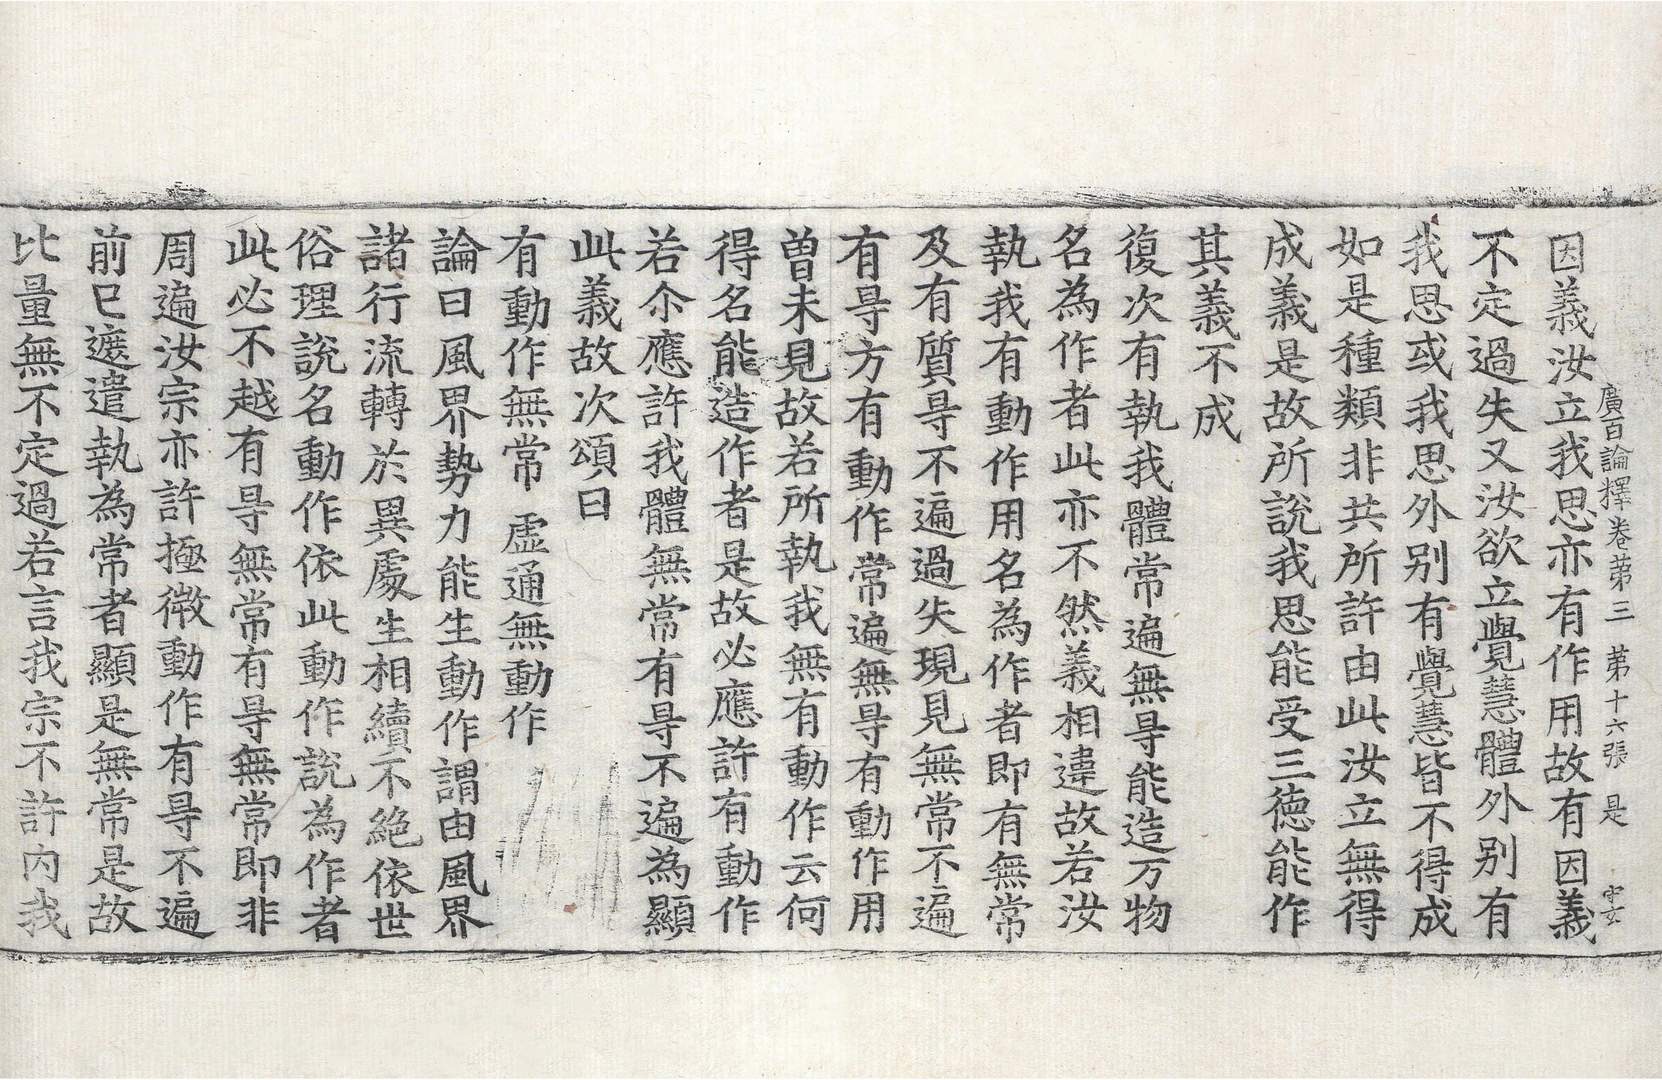 廣百論釋卷第三 第十六張 是
因義汝立我思亦有作用故有因義
不定過失又汝欲立覺慧體外別有
我思或我思外別有覺慧皆不得成
如是種類非共所許由此汝立無得
成義是故所說我思能受三德能作
其義不成
復次有執我體常遍無㝵能造万物
名為作者此亦不然義相違故若汝
執我有動作用名為作者即有無常
及有質㝵不遍過失現見無常不遍
有㝵方有動作常遍無㝵有動作用
曾未見故若所執我無有動作云何
得名能造作者是故必應許有動作
若尒應許我體無常有㝵不遍為顯
此義故次頌曰
有動作無常 虛通無動作
論曰風界勢力能生動作謂由風界
諸行流轉於異處生相續不絕依世
俗理說名動作依此動作說為作者
此必不越有㝵無常有㝵無常即非
周遍汝宗亦許極微動作有㝵不遍
前已遮遣執為常者顯是無常是故
比量無不定過若言我宗不許內我